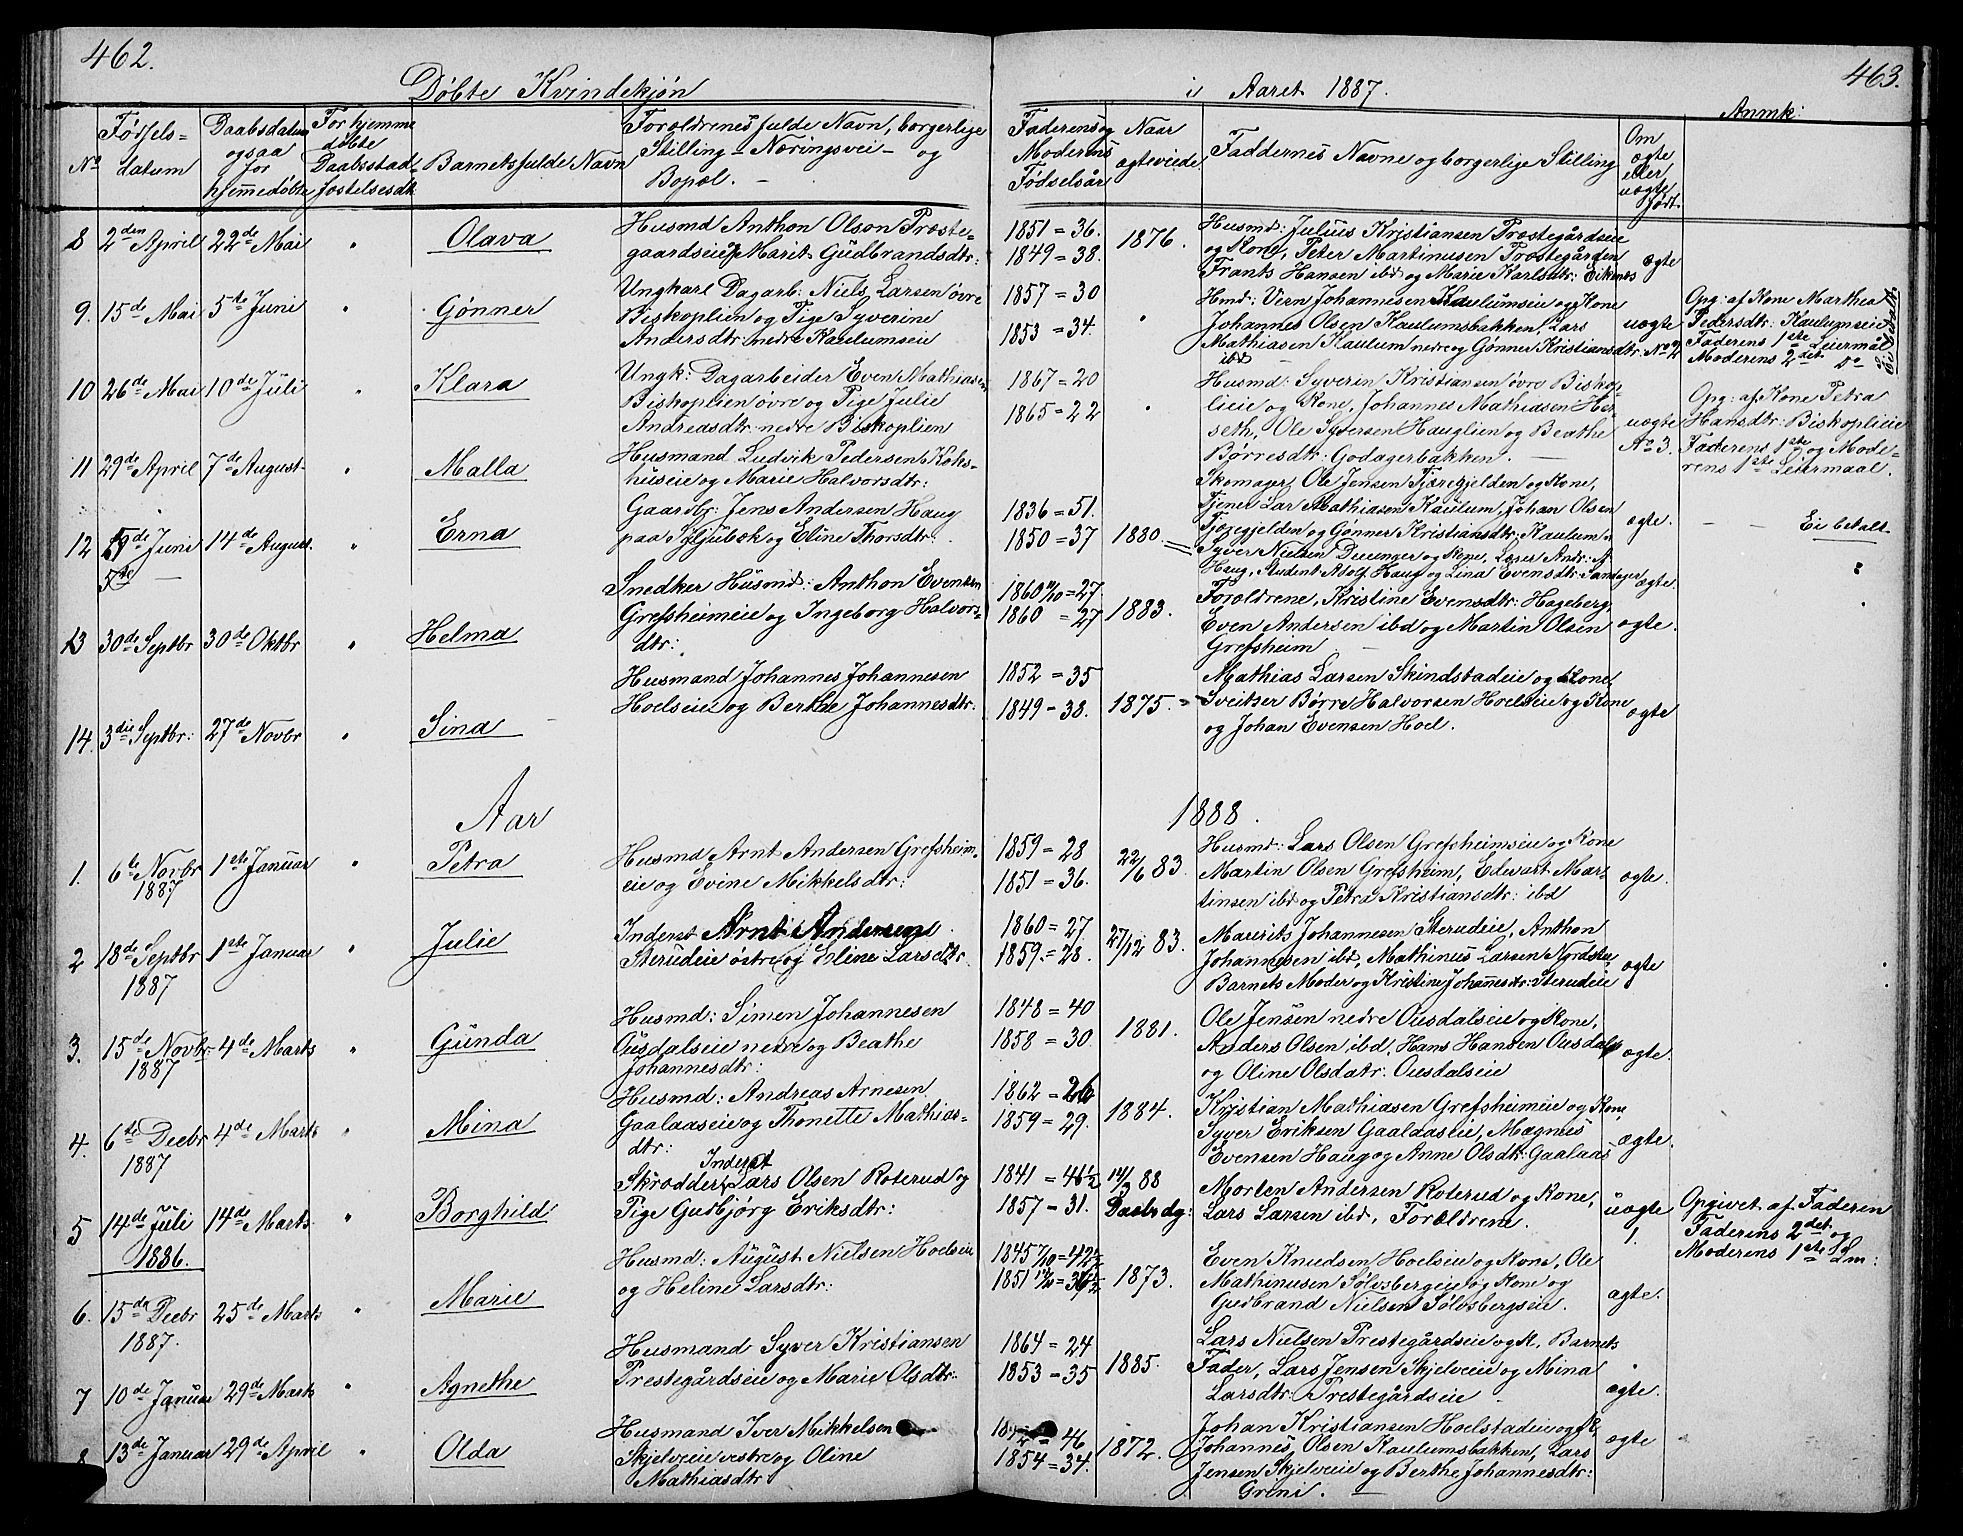 462.
Døbte Kvindekjøn
No
Fødsels=
datum
Daabsdatum
ogsaa
for
hjemmedøbte
For hjemme
døbte
Daabsstad-
festelsesdt.
Barnets fulde Navn
Forældrenes fulde Navn, borgerlige
Stilling - Næringsvei - og
Bopæl. -
8 2den April 22de Mai " Olava
Husmd Anthon Olsen Præste-
gaardseie og Marit Gudbrandsdtr:
9. 15de Mai 5te Juni " Gønner
Ungkarl Dagarb: Niels Larsen øvre
Biskoplien og Pige Syverine
Andersdtr nedre Kaulumseie
10 26de Mai 10de Juli " Klara
Ungk: Dagarbeider Even Mathiasen
Biskoplien øvre og Pige Julie
Andreasdtr nedre Biskoplien
11 29de April 7de August " Malla
Husmand Ludvik Pedersen Koks-
huseie og Marie Halvorsdtr:
12 Juni 14de August. " Erna
5te -
Gaardbr: Jens Andersen Haug
paa Gjubæk og Eline Thorsdtr.
13 30de Septbr 30de Oktbr " Helma
Snedker Husmd: Anthon Evensen
Grefsheimeie og Ingeborg Halvors-
dtr:
14. 3die Septbr: 27de Novbr " Sina
Husmand Johannes Johannesen
Hoelseie og Berthe Johannesdtr:
Aar
1. 6te Novbr 1ste Januar " Petra
1887
Husmd Arnt Andersen Grefsheim-
eie og Evine Mikkelsdtr:
2 18de Septbr 1ste Januar " Julie
1887
Inderst Arnt Andersen
Sterudeie østre og Eline Larsdtr.
3. 15de Novbr 4de Marts " Gunda
1887
Husmd: Simen Johannesen
Ousdalseie nedre og Beathe
Johannesdtr:
4. 6te Decbr 4de Marts " Mina
1887
Husmd: Andreas Arnesen
Gaalaaseie og Thonette Mathias-
dtr:
5 14de Juli 14de Marts " Borghild
1886.
Inderst
Skrædder Lars Olsen Roterud og
Pige Gudbjørg Eriksdtr:
6. 15de Decbr 25de Marts " Marie
1887.
Husmd: August Nielsen Hoelseie
og Heline Larsdtr:
7 10de Januar 29de Marts " Agnethe
Husmand Syver Kristiansen
Prestegårdseie og Marie Olsdtr:
8 13de Januar 29de April " Olda
Husmand Iver Mikkelsen
Skjelveie vestre og Oline
Mathiasdtr
463.
i Aaret 1887.
Faderens og
Moderens
Fødselsår
Naar
ægteviede.
Faddernes Navne og borgerlige Stilling
Om
ægte
eller
uægte
født.
Anmk:
1851 = 36.
1849 = 38.
1876.
Husmd: Julius Kristiansen Præstegårdseie
og Kone, Peter Martinusen Præstegården
Frants Hansen ibd og Marie Karlsdtr: Eiknes
ægte
1857 = 30
1853 = 34.
"
Hmd: Vern Johannesen Kaulumseie og Kone
Johannes Olsen Kaulumsbakken, Lars
Mathiasen Kaulum nedre og Gønner Kristiansdtr:
ibd
uægte
No 2
Opg: af Kone Marthea
Pedersdtr: Kaulumseie
Faderens 1ste Leiermål
Moderens 2det Do
Ei betalt.
1867 = 20
1865 = 22
"
Husmd: Syverin Kristiansen øvre Biskop-
lieie og Kone, Johannes Mathiasen Her-
seth, Ole Syversen Hauglien og Beathe
Børresdtr: Godagerbakken. -
uægte
No 3.
Opg: af Kone Petra
Hansdtr: Biskoplieie
Faderens 1ste og Mode-
rens 1ste Leiermaal.
1836 = 51.
1850 = 37
1880.
Skomager, Ole Jensen Tjæregjelden og Kone,
Tjener Lars Mathiasen Kaulum, Johan Olsen
Tjæregjelden og Gønner Kristiansdtr: Kaulum
ægte.
Ei betalt.
Syver Nielsen og Kone,
Haug, Student Adolf Haug og Lina Evensdtr:
ægte.
1860 = 27.
1860 = 27
1883.
Forældrene, Kristine Evensdtr: Hageberg,
Even Andersen ibd og Martin Olsen
Grefsheim -
ægte.
1852 = 35
1849 - 38.
1875. =
Mathias Larsen Skindstadeie og Kone,
Sveitser Børre Halvorsen Hoelseie og Kone
og Johan Evensen Hoel.
ægte
1888.
1859 = 28
1851 = 36.
22/6 83.
Husmd: Lars Olsen Grefsheimseie og Kone
Martin Olsen Grefsheim, Edevart Mar-
tinsen ibd og Petra Kristiansdtr: ibd
ægte.
1860 = 27
1859. = 28.
27/12 83.
Maurits Johannesen Sterudeie, Anthon
Johannesen ibd, Mathinus Larsen
Barnets Moder og Kristine Johannesdtr: Sterudeie
ægte
1848 = 40
1858 = 30.
1881.
Ole Jensen nedre Ousdalseie og Kone,
Anders Olsen ibd, Hans Hansen Ousdal
og Oline Olsdatr: Ousdalseie
ægte.
1862 = 26
1859 = 29.
1884.
Kristian Mathiasen Grefsheimeie og Kone,
Syver Eriksen Gaalaaseie, Magnus
Evensen Haug og Anne Olsdtr: Gaalaas
ægte.
1841 = 46½
1857 - 31.
14/3 88
Daabsdg:
Morten Andersen Roterud og Kone,
Lars Larsen ibd, Forældrene.
uægte
1.
Opgivet af Faderen
Faderens 2det og
Moderens 1ste Lm:
1845 = 42½
1851 = 36½
1873.
Even Knudsen Hoelseie og Kone, Ole
Mathinusen Sølvsbergeie og Kone og
Gudbrand Nielsen Sølvsbergseie.
ægte.
1864 = 24
1853 - 35
1885.
Lars Nielsen Prestegårdseie og K, Barnets
Fader, Lars Jensen Skjelveie og Mina
Larsdtr: Prestegårdseie -
ægte.
= 46
1854 = 34.
1872.
Johan Kristiansen Hoelstadeie og K
Johannes Olsen Kaulumsbakken, Lars
Jensen Skjelveie og Berthe Johannesdtr:
Grini. -
ægte